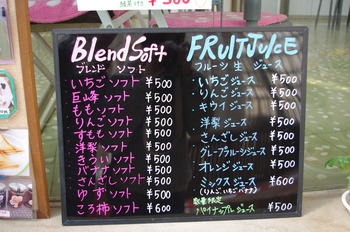 ¥500
BlendSoft
ブレンド ソフト
いちご ソフト ¥500
巨山峰 ソフト ¥500
もも ソフト ¥500
りんご ソフト ¥500
すもも ソフト ¥500
洋梨 ソフト ¥500
きうい ソフト ¥500
バナナ ソフト ¥500
さんざし ソフト ¥500
ゆず ソフト ¥500
ころ柿 ソフト ¥600
FRUITJUICE
フルーツ 生 ジュース
いちご ジュース ¥500
りんご ジュース ¥500
キウイ ジュース ¥500
洋梨 ジュース ¥500
さんざし ジュース ¥500
グレープフルーツジュース ¥500
オレンジ ジュース ¥500
ミックス ジュース ¥600
(りんご、いちご、バナナ)
数量限定
パイナップル ジュース ¥500